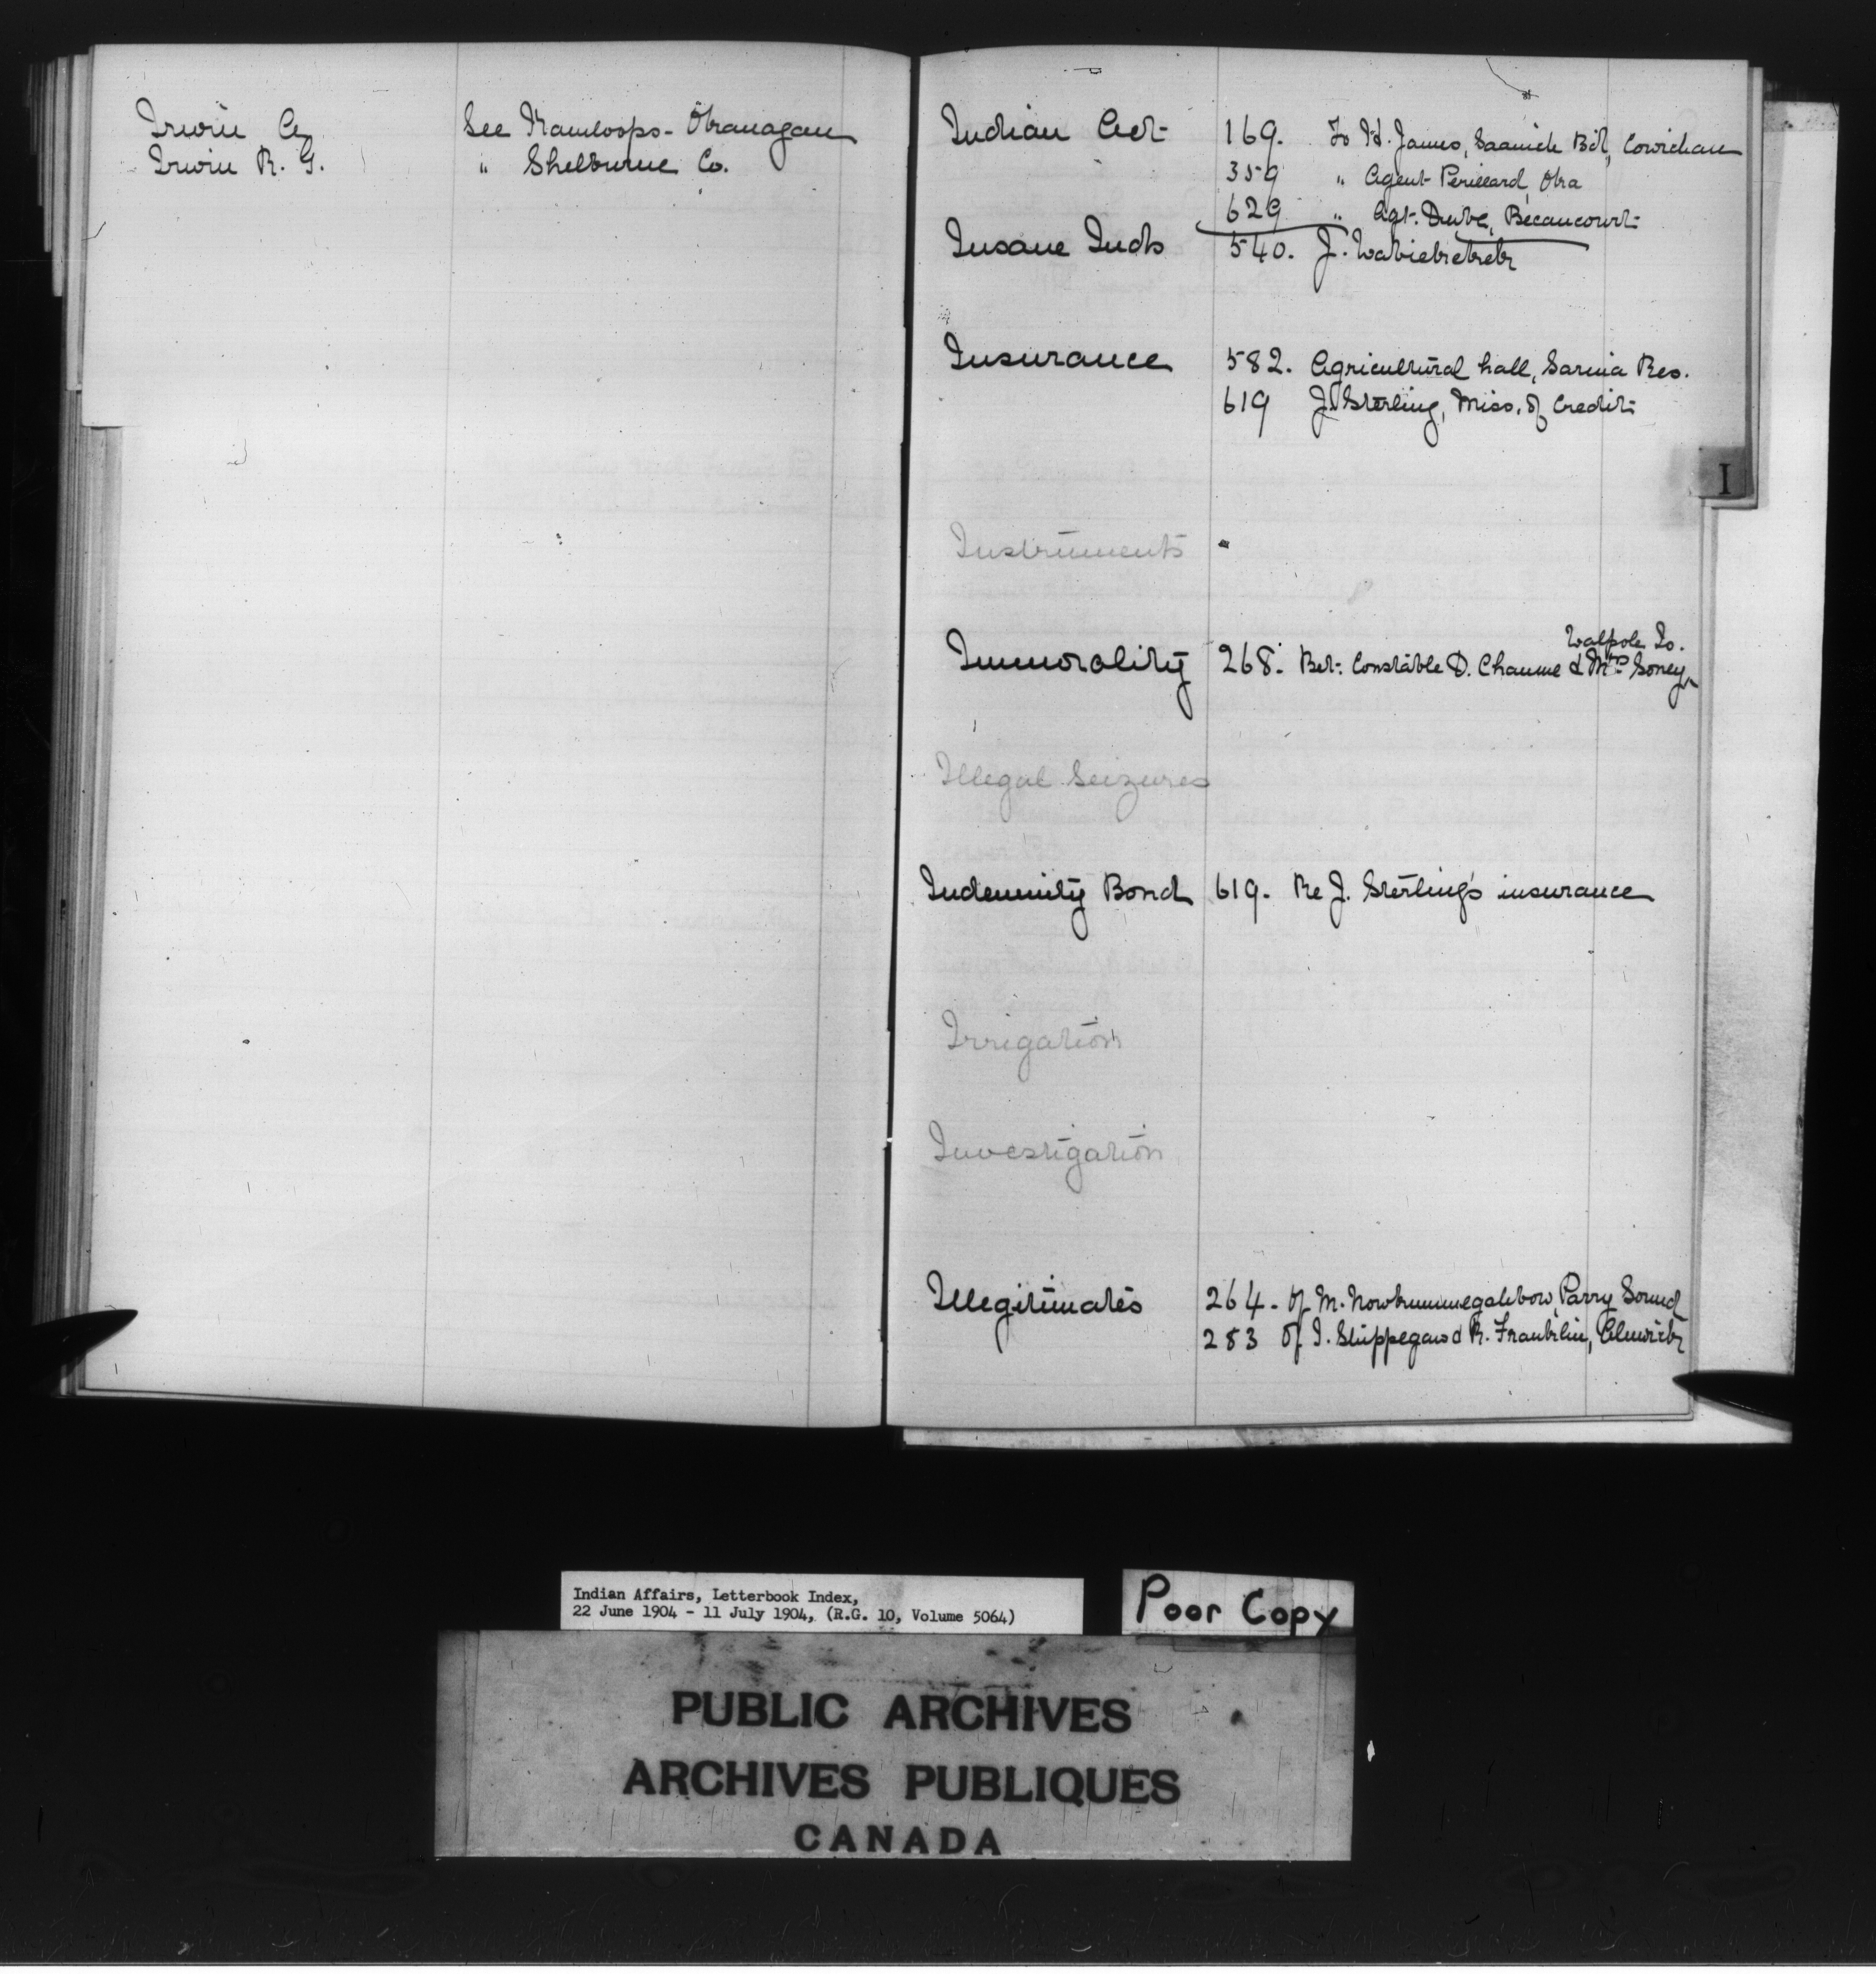 Irwin A. See Kamloops-Okanagan
Irwin R. G. " Shelburne Co.
Indian Act 169. To H. James, Saanich Bd, Cowichan
359 " Agent Perillard, Oka
629 " Agt. Dube, Becancourt
Insane Inds 540. J.
Insurance 582. Agricultural hall, Sarnia Res.
619 J. Sterling, Miss. of Credit
I
Instruments
Walpole Is.
Immorality 268. Bet. Constable D. & Mrs Soney
Illegal Seizures
Indemnity Bond 619. Re J. Sterling's insurance
Irrigation
Investigation
Illegitimates 264. of M. Parry Sound
283 of I. Shippegaw & R. Franklin, Alnwick
Indian Affairs, Letterbook Index,
22 June 1904 - 11 July 1904, (R.G. 10, Volume 5064)
Poor Copy
PUBLIC ARCHIVES
ARCHIVES PUBLIQUES
CANADA